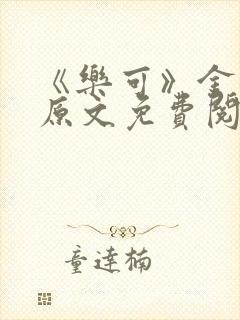 《樂可》全
原文免費閱
童達楠